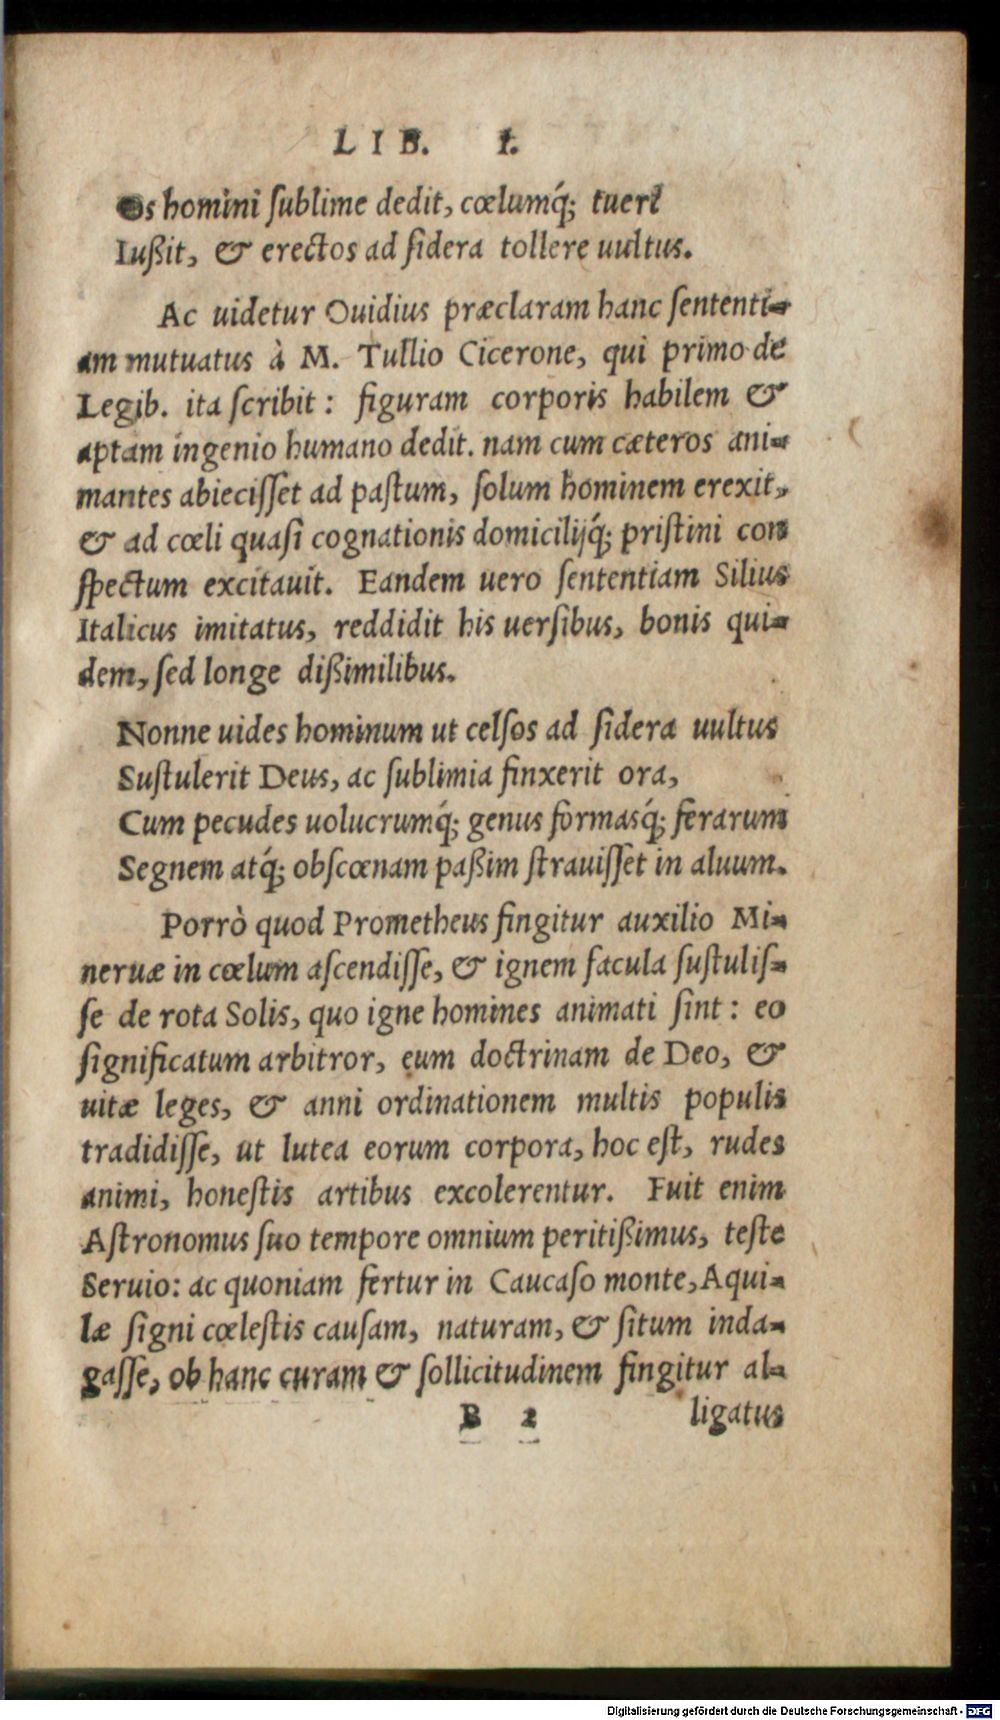 LIB. I.
Os homini ſublime dedit, cœlumq́; tueri
Iußit, & erectos ad ſidera tollere uultus.
Ac uidetur Ouidius præclaram hanc ſententi-
am mutuatus à M. Tullio Cicerone, qui primo de
Legib. ita ſcribit: figuram corporis habilem &
aptam ingenio humano dedit. nam cum cæteros ani-
mantes abieciſſet ad paſtum, ſolum hominem erexit,
& ad cœli quaſi cognationis domicilijq́; priſtini con
ſpectum excitauit. Eandem uero ſententiam Silius
Italicus imitatus, reddidit his uerſibus, bonis qui-
dem, ſed longe dißimilibus.
Nonne uides hominum ut celſos ad ſidera uultus
Suſtulerit Deus, ac ſublimia finxerit ora,
Cum pecudes uolucrumq́; genus formasq́; ferarum
Segnem atq́; obſcœnam paßim ſtrauiſſet in aluum.
Porrò quod Prometheus fingitur auxilio Mi-
neruæ in cœlum aſcendiſſe, & ignem facula ſuſtuliſ-
ſe de rota Solis, quo igne homines animati ſint: eo
ſignificatum arbitror, eum doctrinam de Deo, &
uitæ leges, & anni ordinationem multis populis
tradidiſſe, ut lutea eorum corpora, hoc eſt, rudes
animi, honeſtis artibus excolerentur. Fuit enim
Aſtronomus ſuo tempore omnium peritißimus, teſte
Seruio: ac quoniam fertur in Caucaſo monte, Aqui-
læ ſigni cœleſtis cauſam, naturam, & ſitum inda-
gaſſe, ob hanc curam & ſollicitudinem fingitur al-
B 2 ligatus
Digitalisierung gefördert durch die Deutsche Forschungsgemeinschaft - DFG